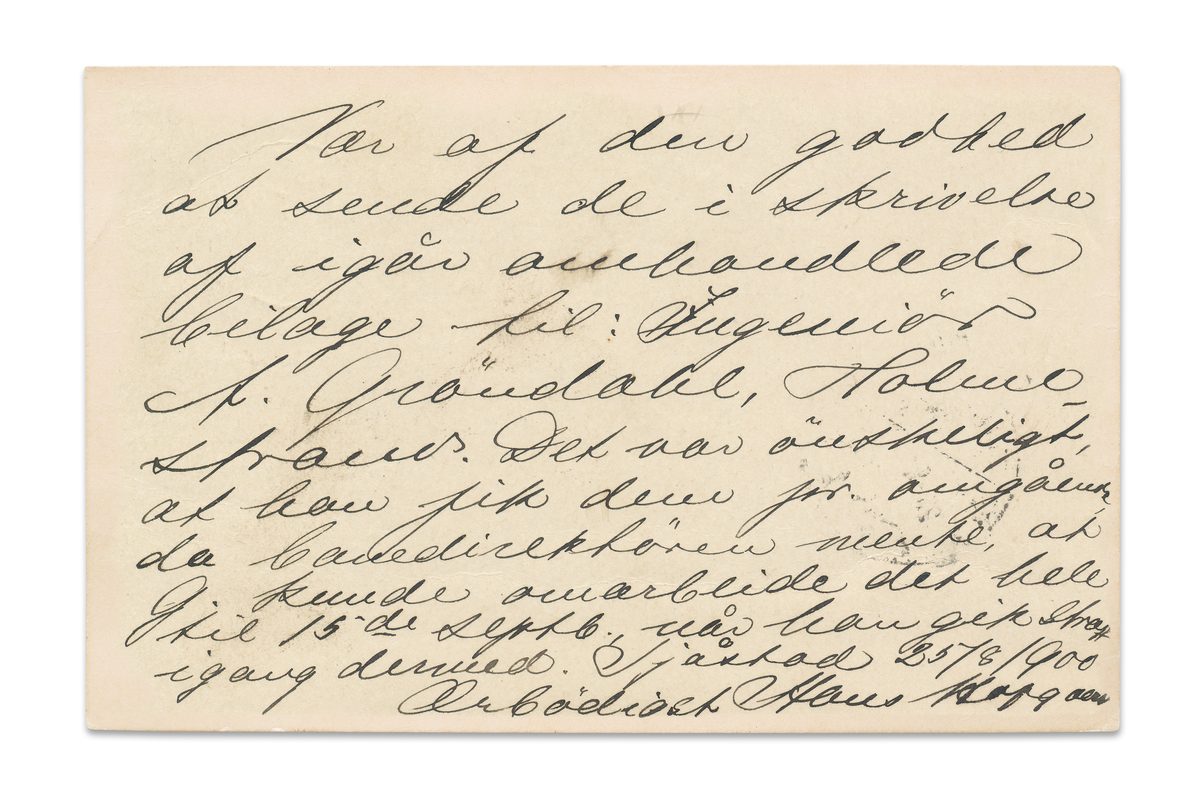 Vær af den godhed
at sende de i skrivelse
af igår omhandlede
bilage til: Ingeniör
A. Gröndahl, Holme-
strand. Det var önskeligt,
at han fik dem pr. omgående,
da banedirektören mente, at
G. kunde omarbeide det hele
til 15de septb., når han gik straks
igang dermed. Sjåstad 25/8/900
Ærbödigst Hans